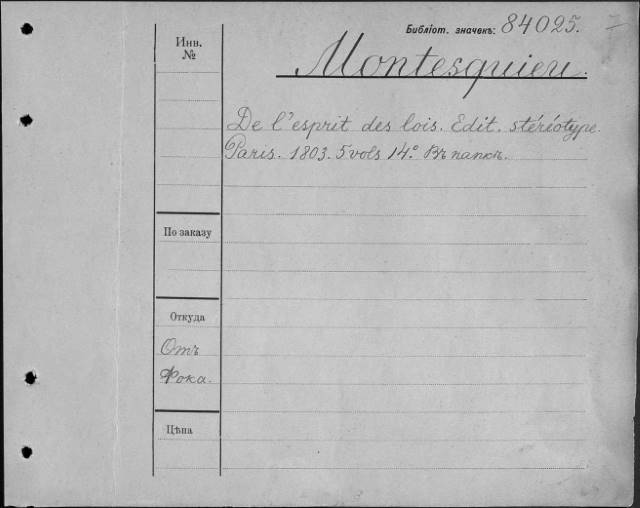 Библіот. значекъ: 84025.
Инв.
№
Montesquieu.
De l'esprit des lois. Edit. stéréotype.
Paris. 1803. 5 vols 14.° Въ папкѣ.
По заказу
Откуда
Отъ
Фока.
Цѣна